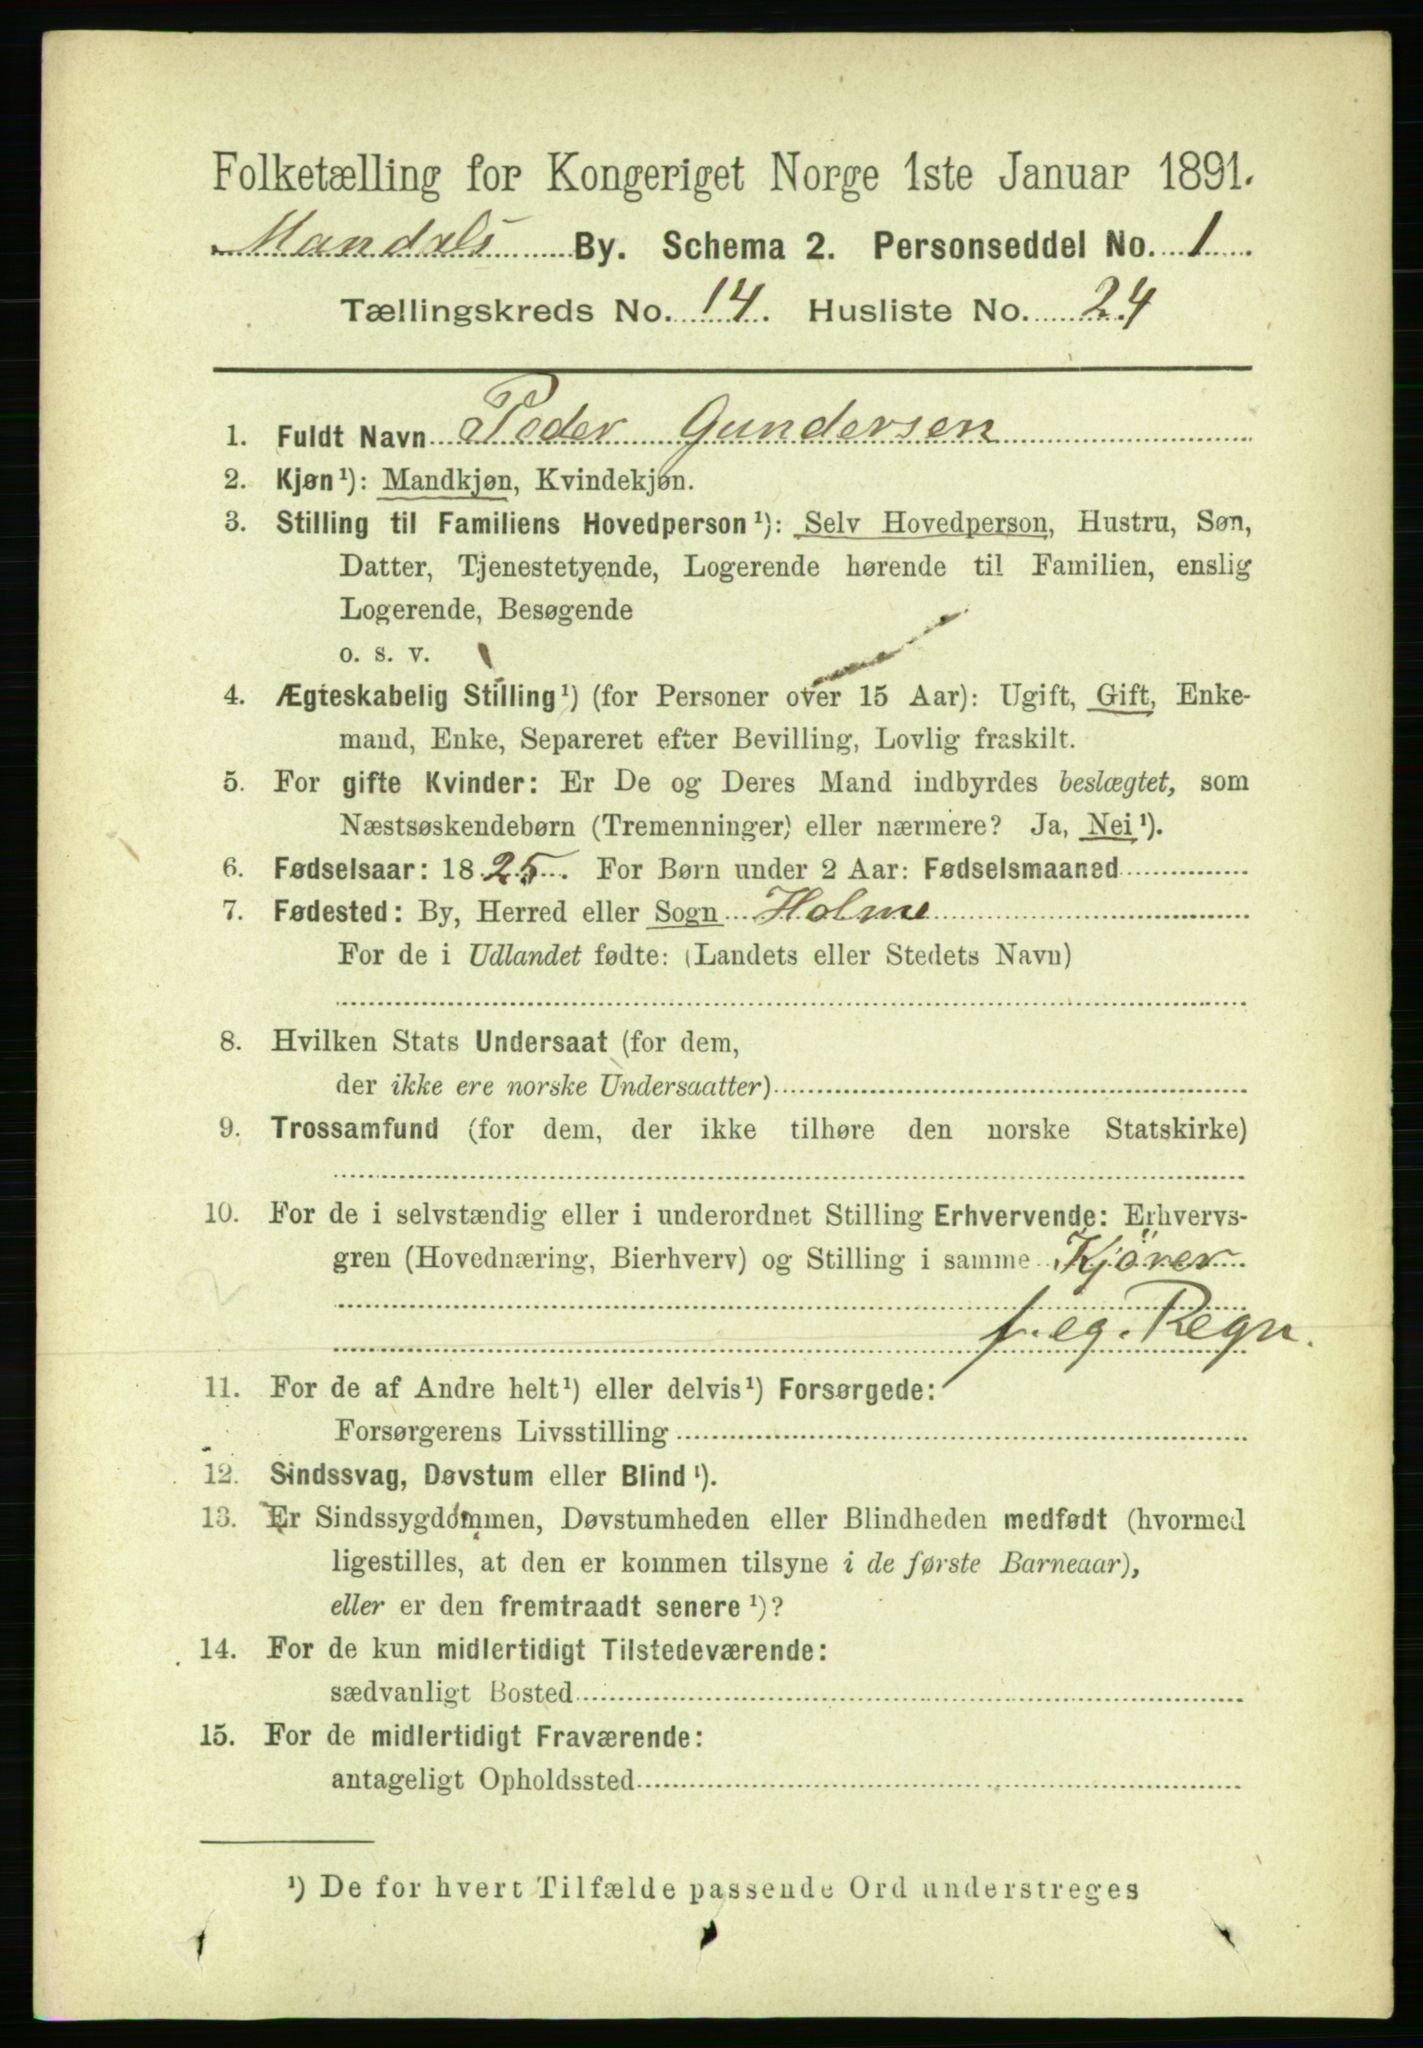 Folketælling for Kongeriget Norge 1ste Januar 1891.
Mandals By. Schema 2. Personseddel No. 1
Tællingskreds No. 14. Husliste No. 24
1. Fuldt Navn Peder Gundersen
2. Kjøn¹): Mandkjøn, Kvindekjøn.
3. Stilling til Familiens Hovedperson¹): Selv Hovedperson, Hustru, Søn,
Datter, Tjenestetyende, Logerende hørende til Familien, enslig
Logerende, Besøgende
o. s. v.
4. Ægteskabelig Stilling¹) (for Personer over 15 Aar): Ugift, Gift, Enke-
mand, Enke, Separeret efter Bevilling, Lovlig fraskilt.
5. For gifte Kvinder: Er De og Deres Mand indbyrdes beslægtet, som
Næstsøskendebørn (Tremenninger) eller nærmere? Ja, Nei¹).
6. Fødselsaar: 1825. For Børn under 2 Aar: Fødselsmaaned
7. Fødested: By, Herred eller Sogn Holme
For de i Udlandet fødte: (Landets eller Stedets Navn)
8. Hvilken Stats Undersaat (for dem,
der ikke ere norske Undersaatter)
9. Trossamfund (for dem, der ikke tilhøre den norske Statskirke)
10. For de i selvstændig eller i underordnet Stilling Erhvervende: Erhvervs-
gren (Hovednæring, Bierhverv) og Stilling i samme Kjörer
f. eg. Regn.
11. For de af Andre helt¹) eller delvis¹) Forsørgede:
Forsørgerens Livsstilling
12. Sindssvag, Døvstum eller Blind¹).
13. Er Sindssygdommen, Døvstumheden eller Blindheden medfødt (hvormed
ligestilles, at den er kommen tilsyne i de første Barneaar),
eller er den fremtraadt senere¹)?
14. For de kun midlertidigt Tilstedeværende:
sædvanligt Bosted
15. For de midlertidigt Fraværende:
antageligt Opholdssted
¹) De for hvert Tilfælde passende Ord understreges